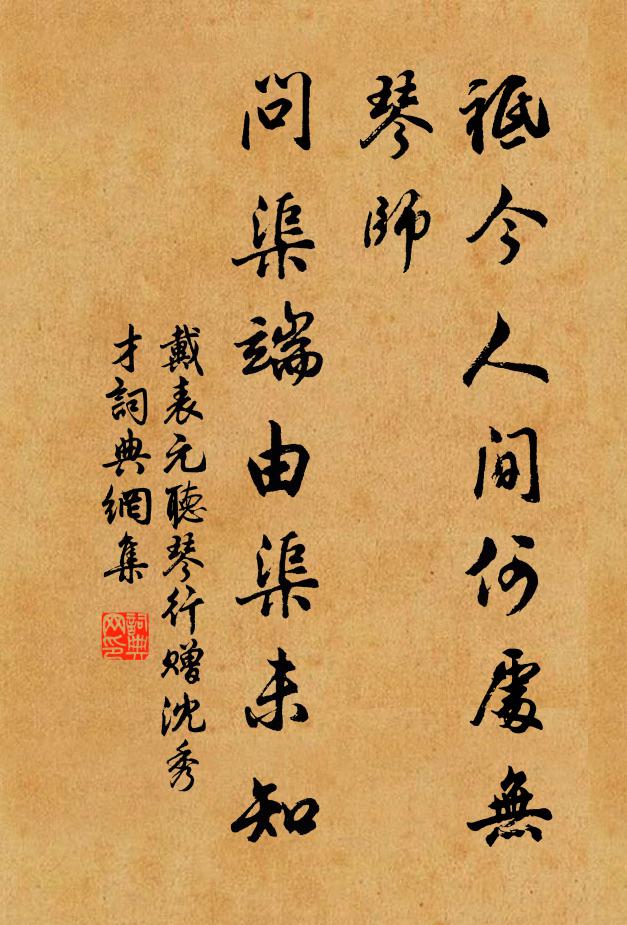 祗今人間何處無
琴師
問渠端由渠未知
戴表元聽琴行贈沈秀
才詞典網集
詞典
网印